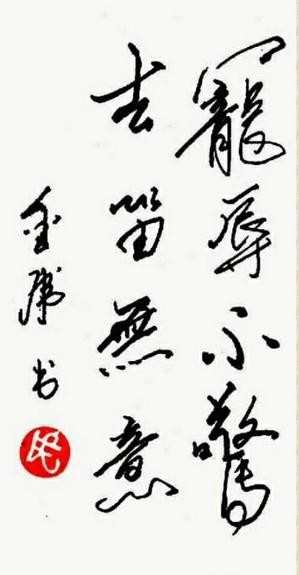 寵辱不驚
去留無意
金 书